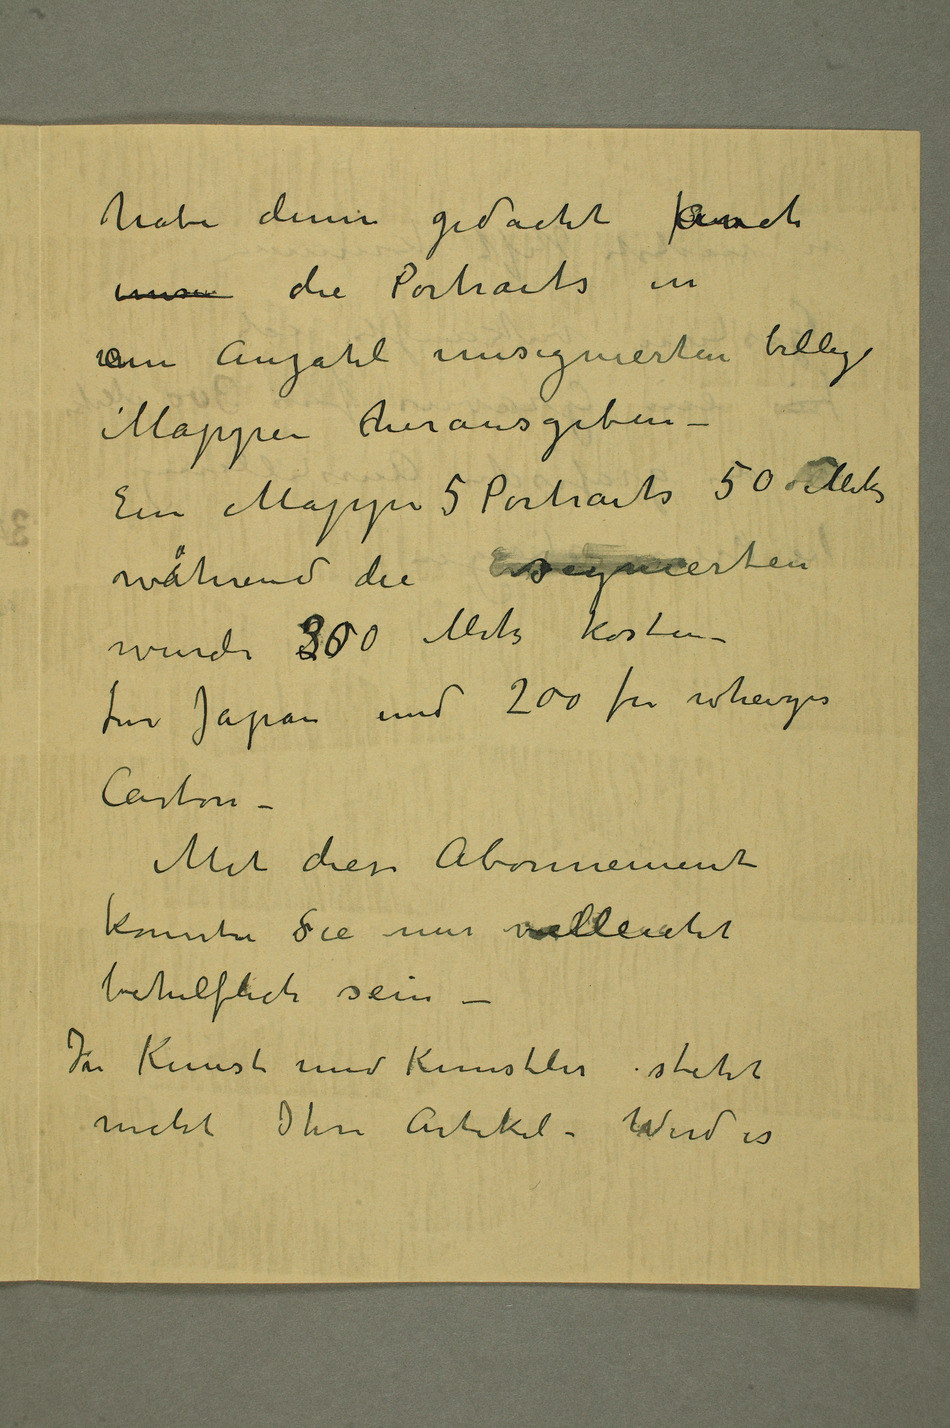 habe denn gedacht auch
die Portraits in
ein Anzahl unsignierten billige
Mappen herausgeben –
Ein Mappe 5 Portraits 50 Mk
während die signierten
wurde 300 Mk kosten –
fur Japan und 200 fur
Carton –
Mit diese Abonnement
konnten Sie mir villeicht
behilflich sein –
In Kunst und Kunstler steht
nicht Ihre Artikel – Wird es